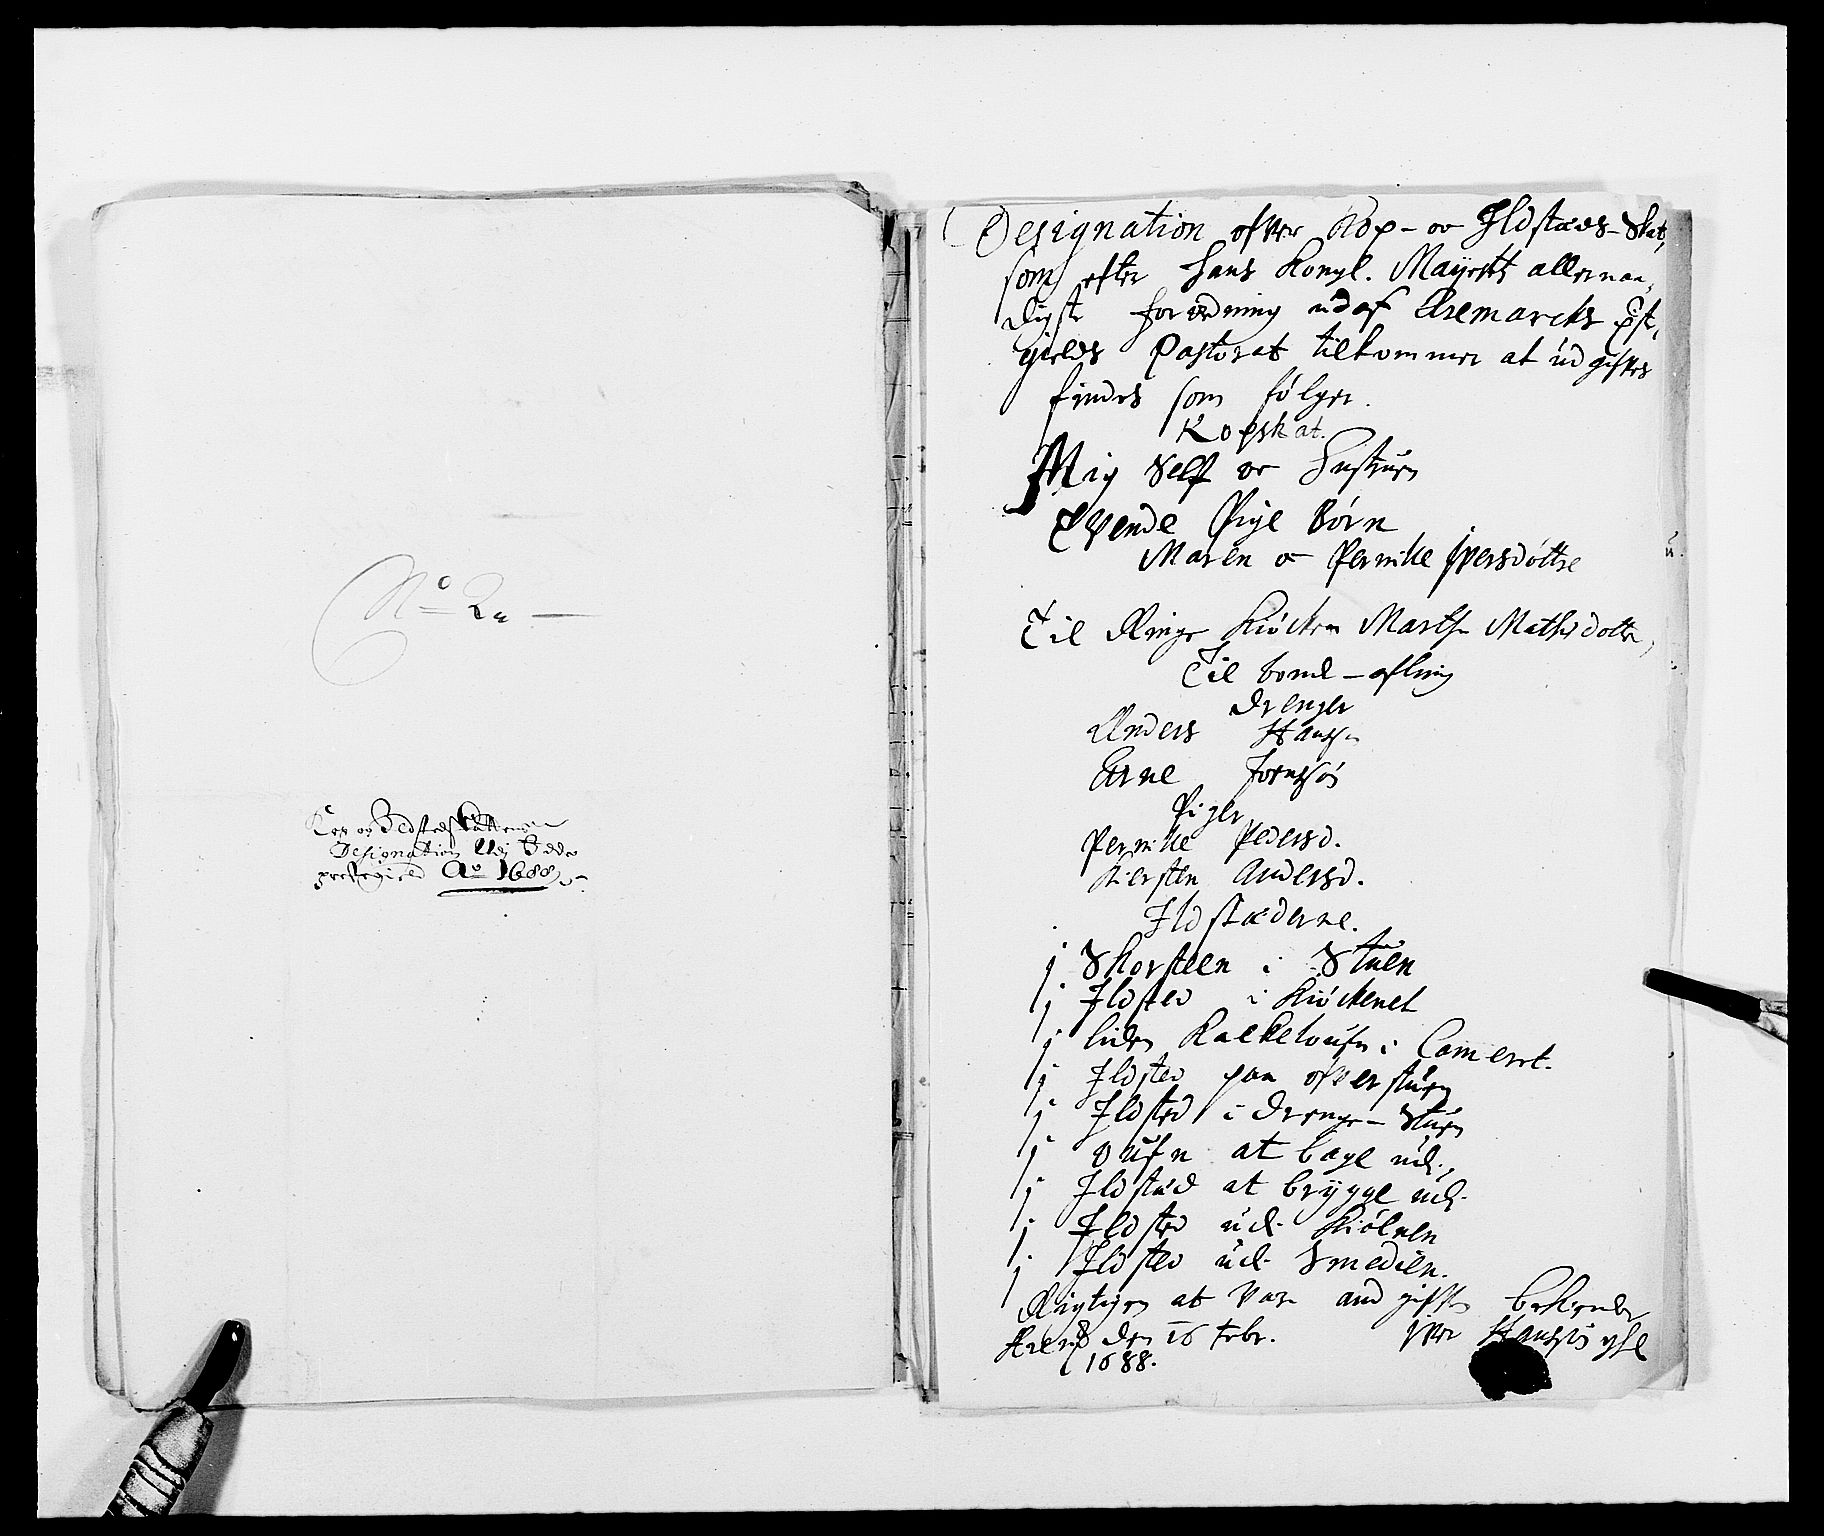 No 2
Kop og Ildstedskattens
Designation Udj
prestegield Ao 1688
Designation ofver Kop- oc Ildstæds-Skat,
som efter Hans Kongl. Mayestts allernaa,
digste forordning udaf Aremarchs Pst,
gields Pastorat tilkommer at udgifves
findes som fölger.
Kopskat.
Mig Self oc Hustruen
Tvende Pige Börn
Maren oc Pernille Ifversdöttre
Til Ringe Kiöcken Marthe Mathisdotter,
Til bonde-afling
drenger
Anders Hanssen
Arne Joenssön
Piger
Pernille Pedersd.
Kiersten Andersd.
Ildstæderne.
j Skorsteen i Stuen
j Ildsted i Kiöckenet
j liden Kackeloufn i Cameret.
j Ildsted paa ofverstuen
j Ildsted i drenge-Stuen
j oufn at bage udj,
j Ildstæd at brygge udj
j Ildsted udj Kiölnen
j Ildsted udj Smedien.
Rigtigen at være angifven bekiender
den 16 Febr. Ifver Hanssön
1688.